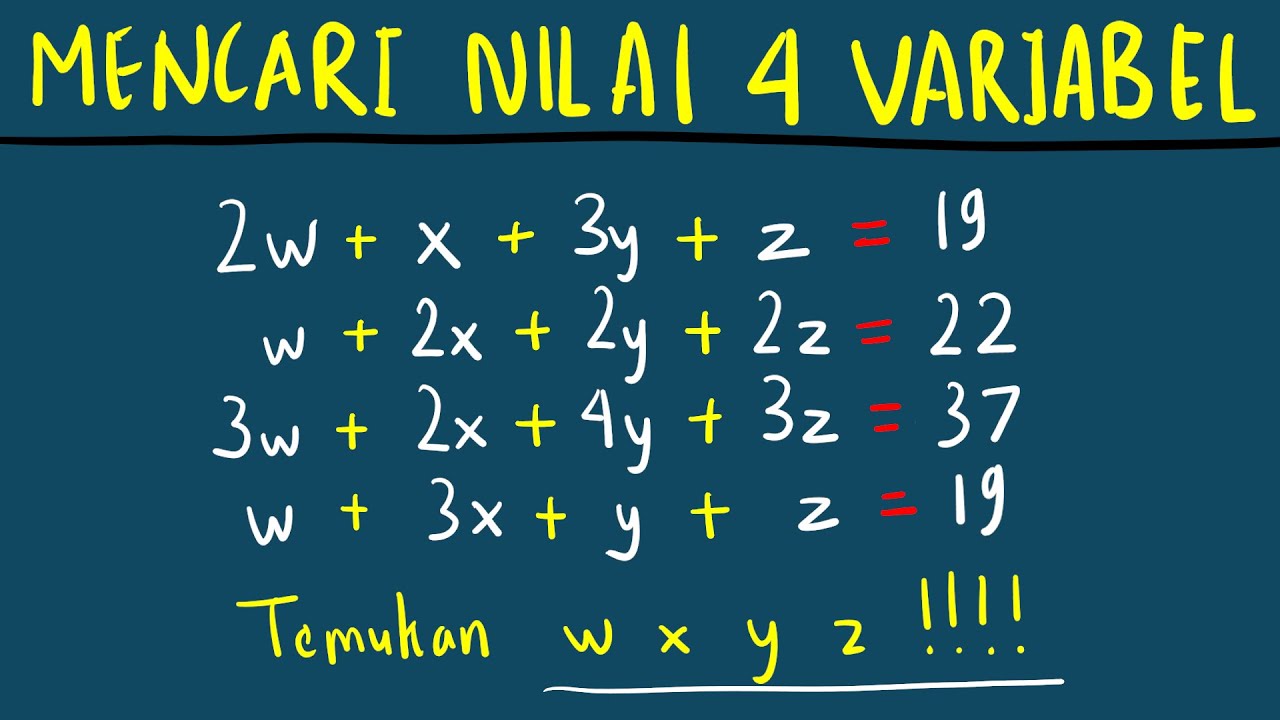 MENCARI NILAI 4 VARIABEL
2w + x + 3y + z = 19
w + 2x + 2y + 2z = 22
3w + 2x + 4y + 3z = 37
w + 3x + y + z = 19
Temukan w x y z !!!!